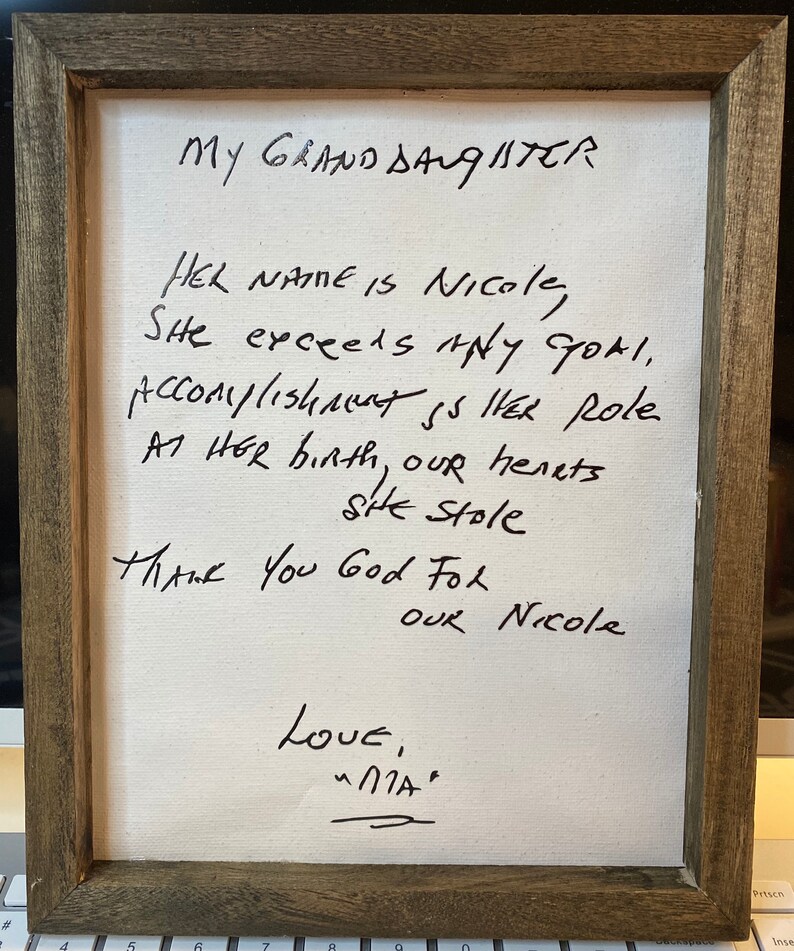 My GRANDDAUGHTER
HER NAME is Nicole,
SHe exceeds ANy GOAl.
ACCOMplishment is HER Role
AT HER birth, our heARTs
SHE Stole
THANK You God FOR
OUR Nicole
LOVE,
"MA"
Prtscn
#
4
5
6
7
8
9
0
Backspace
Inse